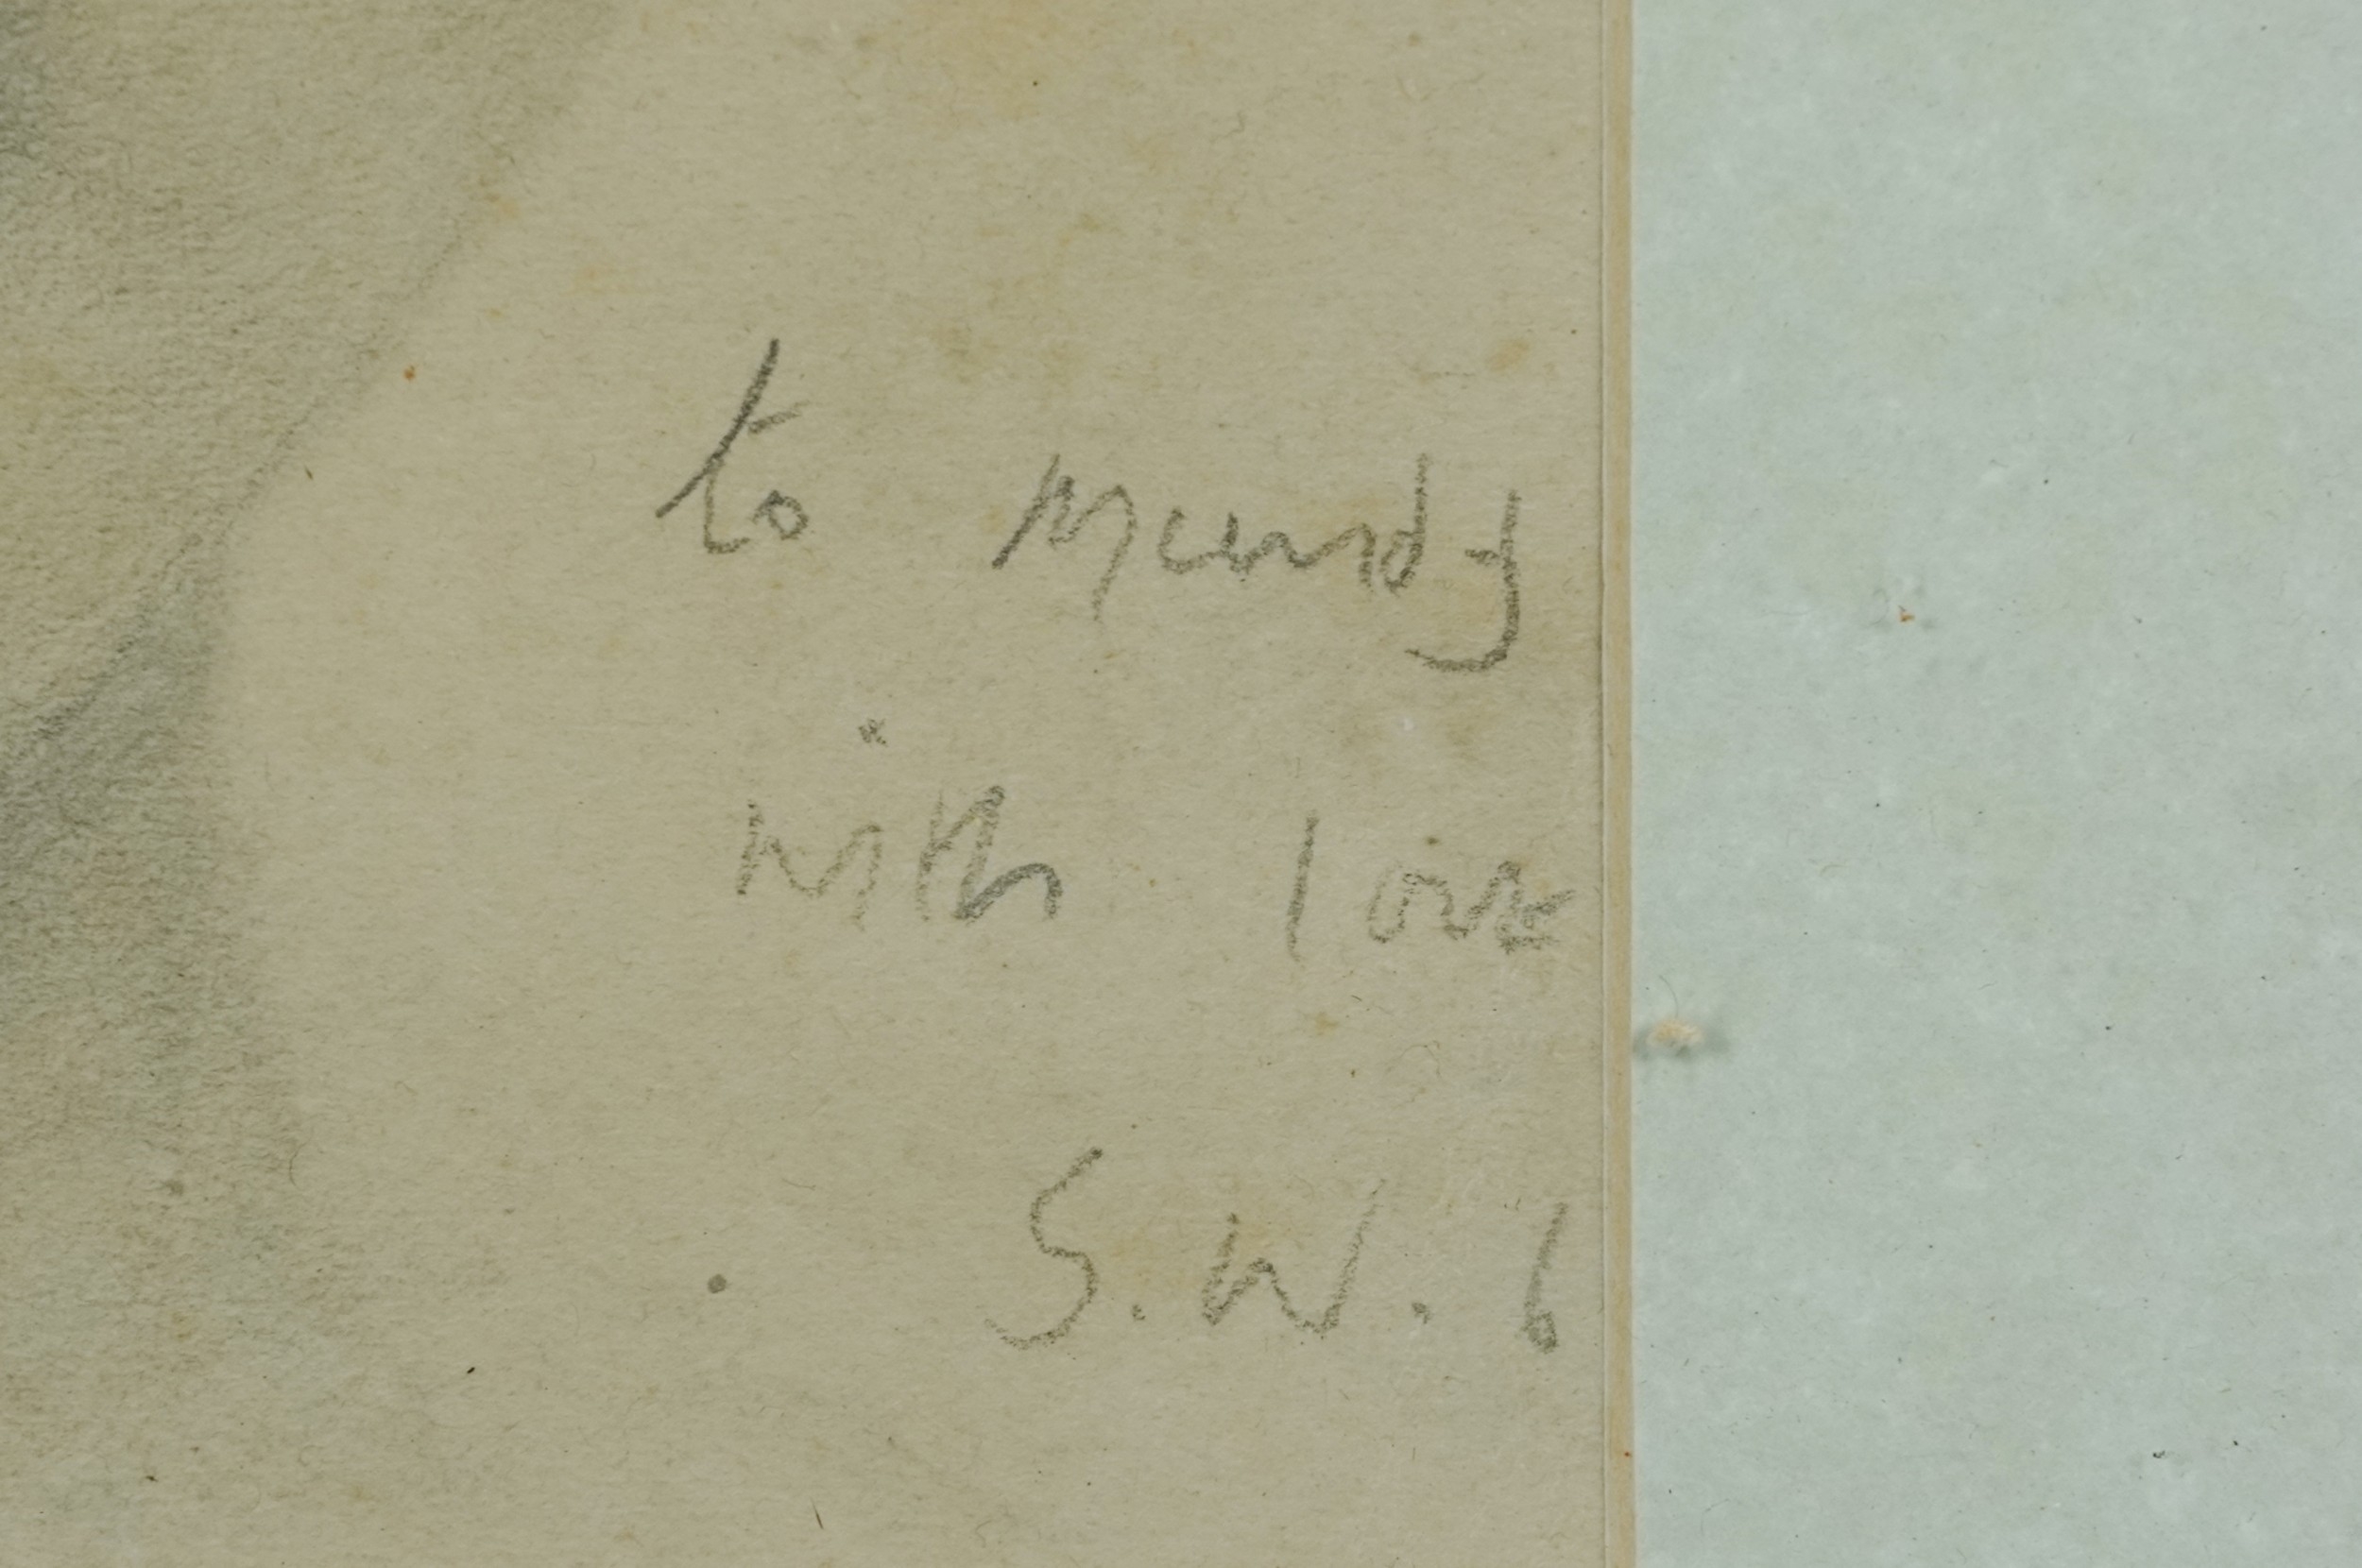 to Mundy
with love
S.W.